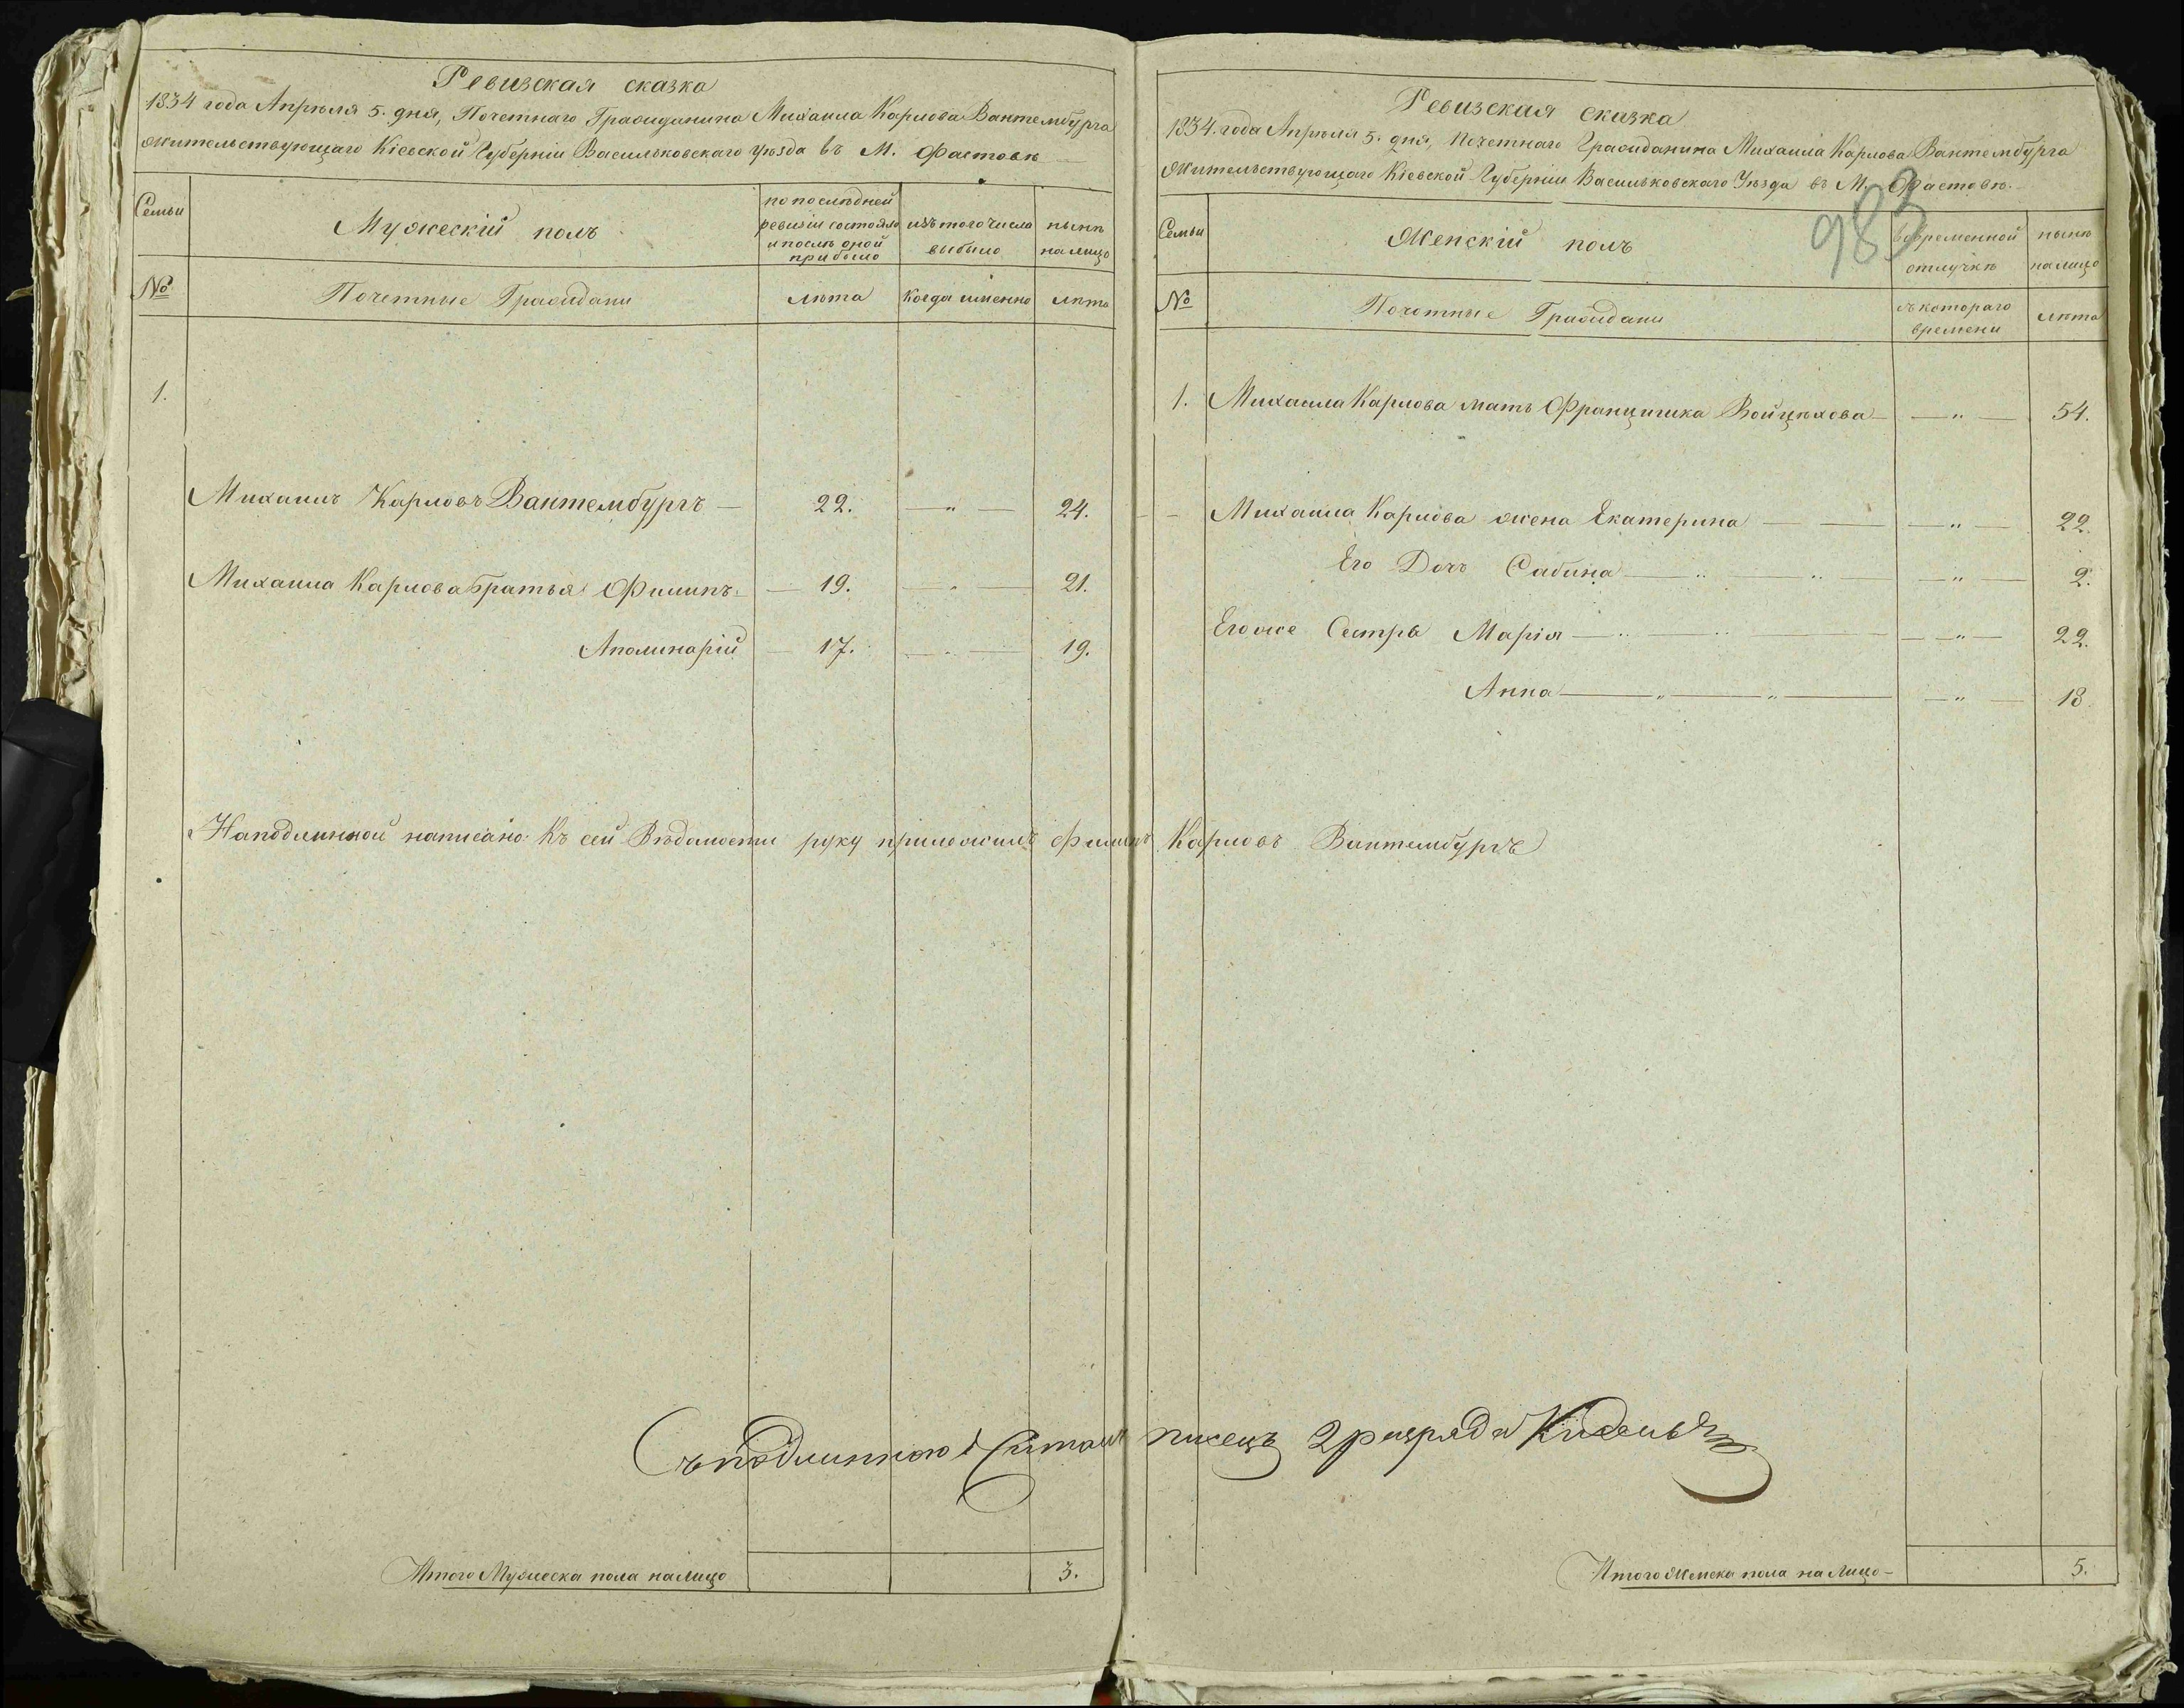 Ревизская сказка
1834 года Апрѣля 5. дня, Почетнаго Гражданина Михаила Карлова Вантембурга
Жительствующаго Кіевской Губерніи Васильковскаго уѣзда въ М. Фастовѣ
Семьи
Мужескій полъ
по последней
ревизіи состояло
и послѣ оной
прибыло
изъ того числа
выбыло
нынѣ
на лицо
№
Почетные Граждани
лѣта
Когда именно
лѣта
1.
Михаилъ Карловъ Вантембургъ — 22. — " — 24.
Михаила Карлова братья Филипъ — 19. — " — 21.
Аполинарій — 17. — " — 19.
Наподлинной написано: Къ сей Вѣдомости руку приложилъ Филипъ Карловъ Вантембургъ
Съ подлинною читалъ писецъ 2 разряда
Итого Мужеска пола на лицо 3.
Ревизская сказка
983
1834. года Апрѣля 5. дня, Почетнаго Гражданина Михаила Карлова Вантембурга
Жительствующаго Кіевской Губерніи Васильковскаго Уѣзда въ М. Фастовѣ.
Семьи
Женскій полъ
во временной
отлучкѣ
нынѣ
на лицо
№
Почотные Граждани
съ котораго
времени
лѣта
1. Михаила Карлова мать Францишка Войцѣхова — " — 54.
Михаила Карлова жена Екатерина — " — 22.
Его Дочь Сабина — " — 2.
Его же Сестры Марія — " — 22.
Анна — " — 18.
Итого Женска пола на Лицо — 5.